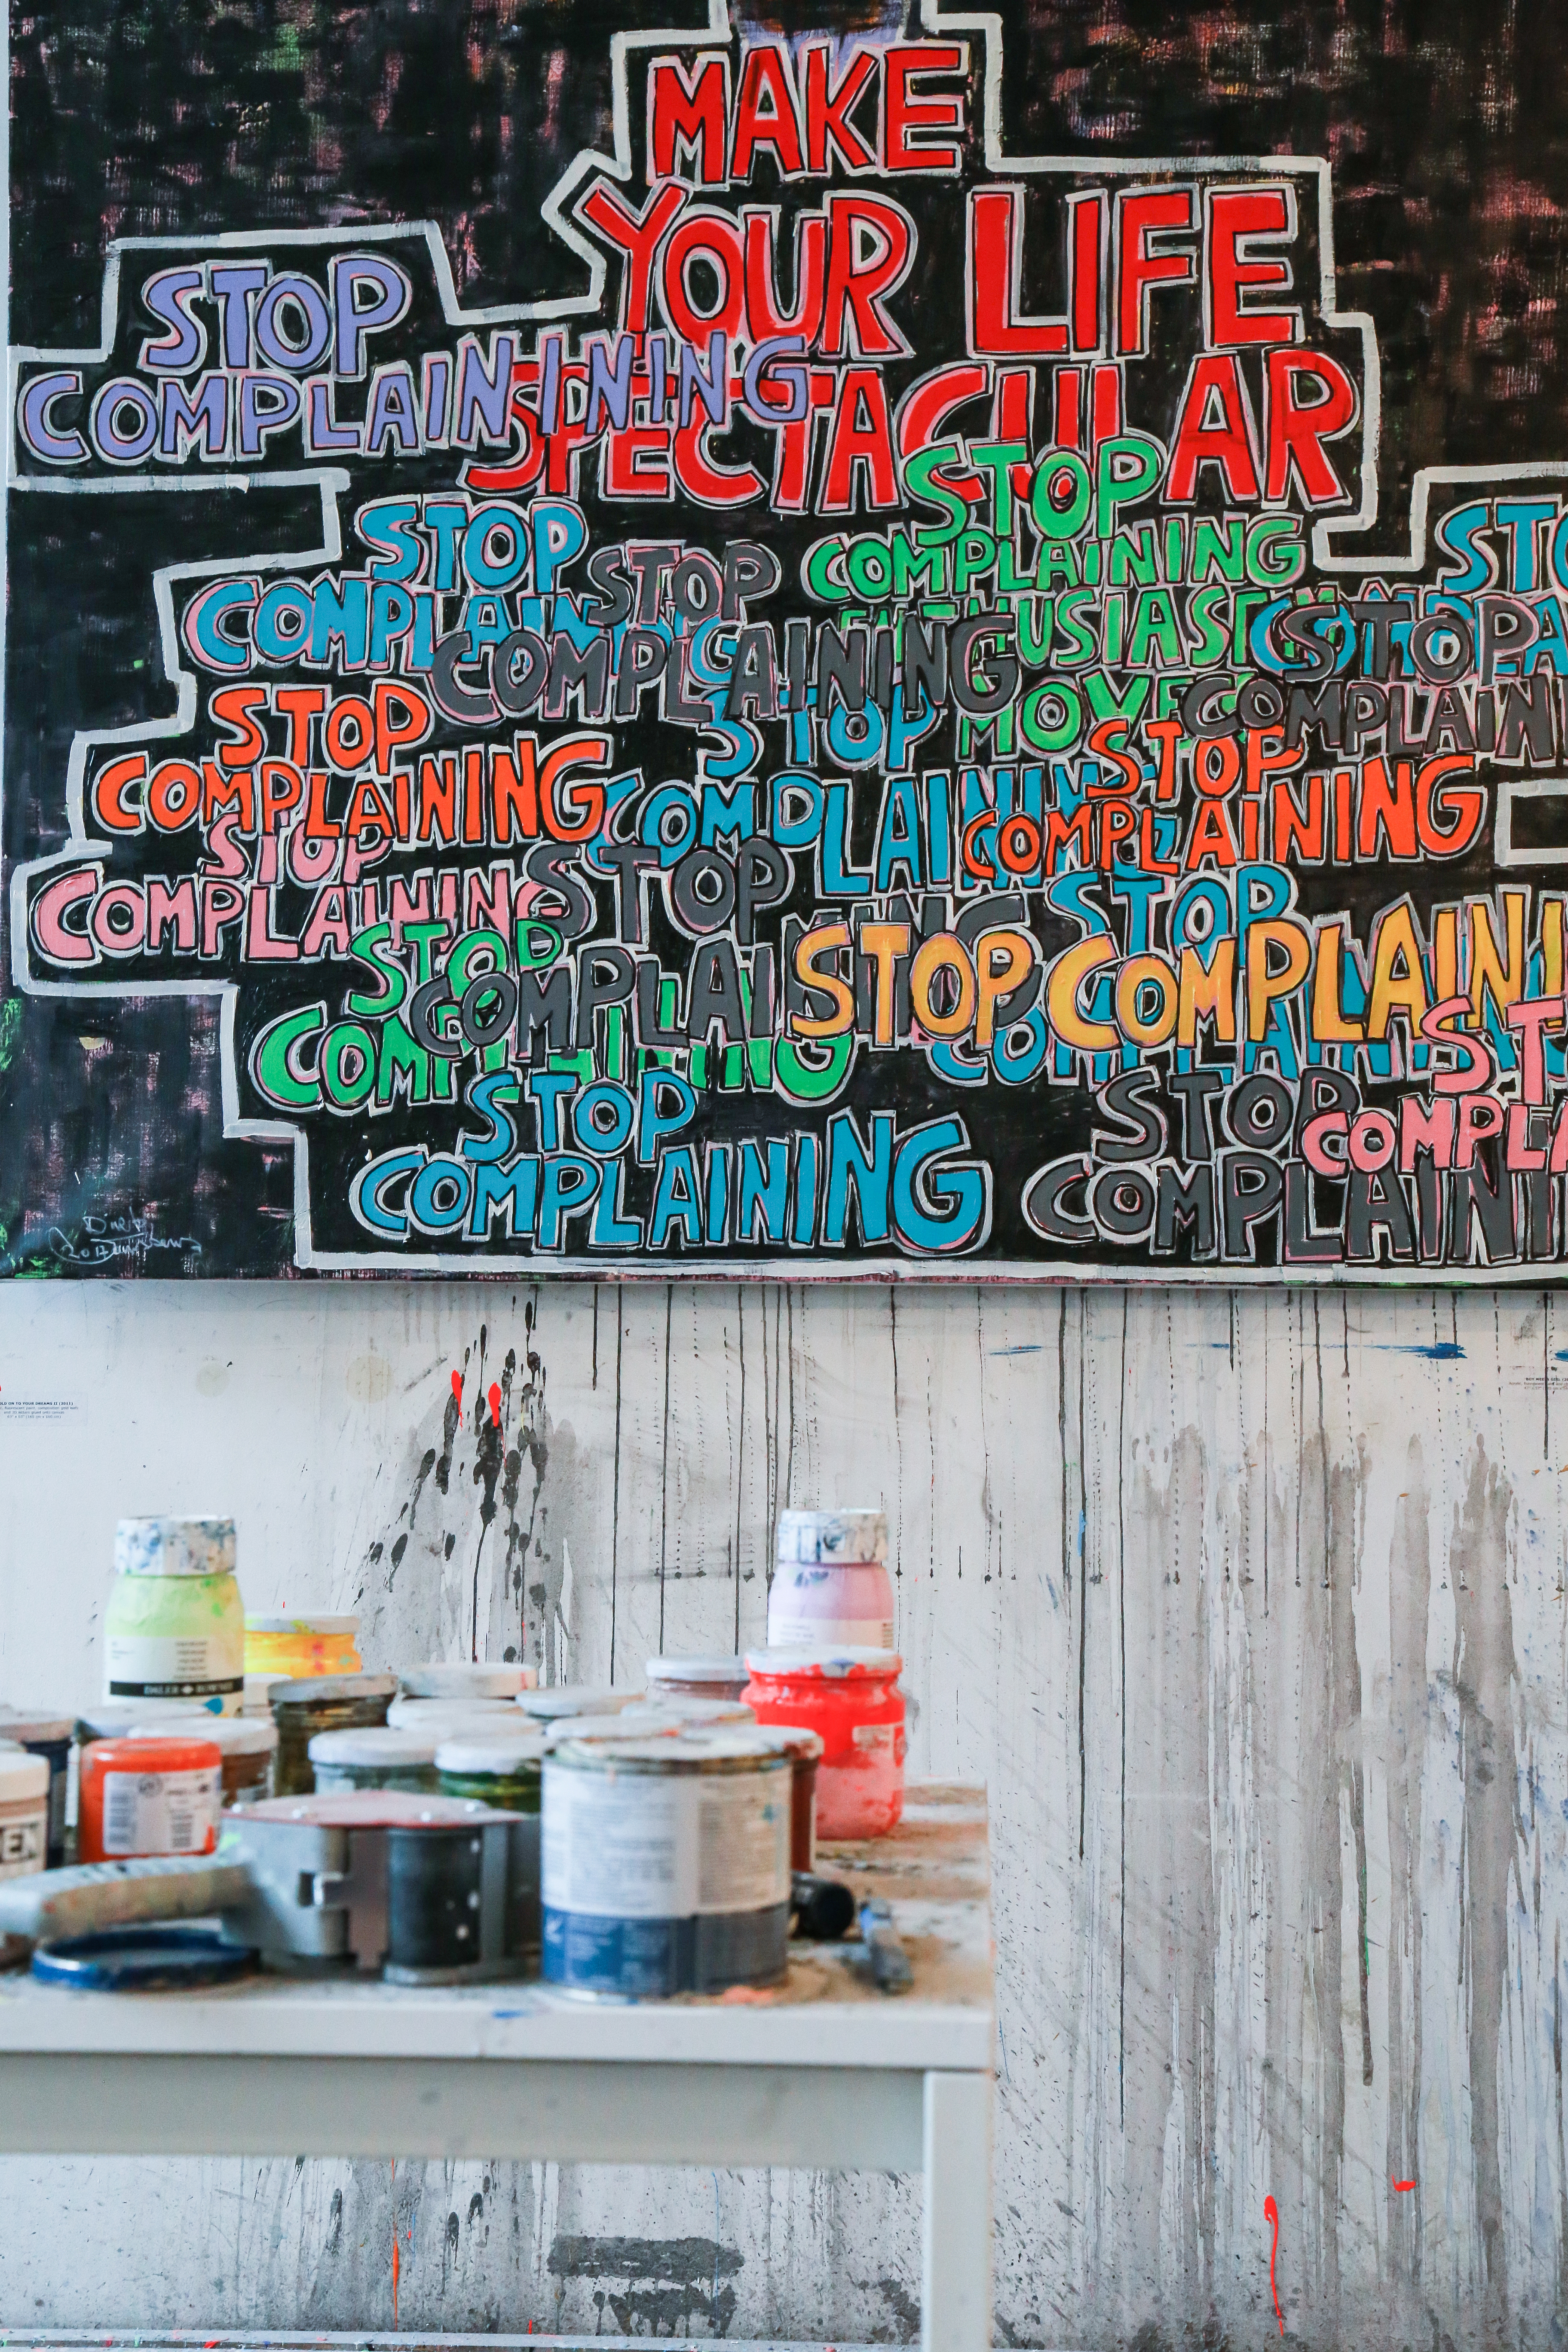 MAKE
YOUR LIFE
SPECTACULAR
STOP
COMPLAINININING
STOP
COMPLAINING
STOP
COMPLAINING
ENTHUSIASM
MOVES
STOP
COMPLAINING
STO
COMPLA
STOP
COMPLAIN
STOP
COMPLAINING
STOP
COMPLAINING
STOP
COMPLAINING
STOP
COMPLAINING
STOP
COMPLAINING
STOP
COMPLAINING
STOP
COMPLAINING
STOP COMPLAINI
STOP
COMPLAINING
ST
COMPLA
STOP
COMPLAINING
STOP
COMPLAINI
LD ON TO YOUR DREAMS II (2011)
DALER ROWNEY
EX